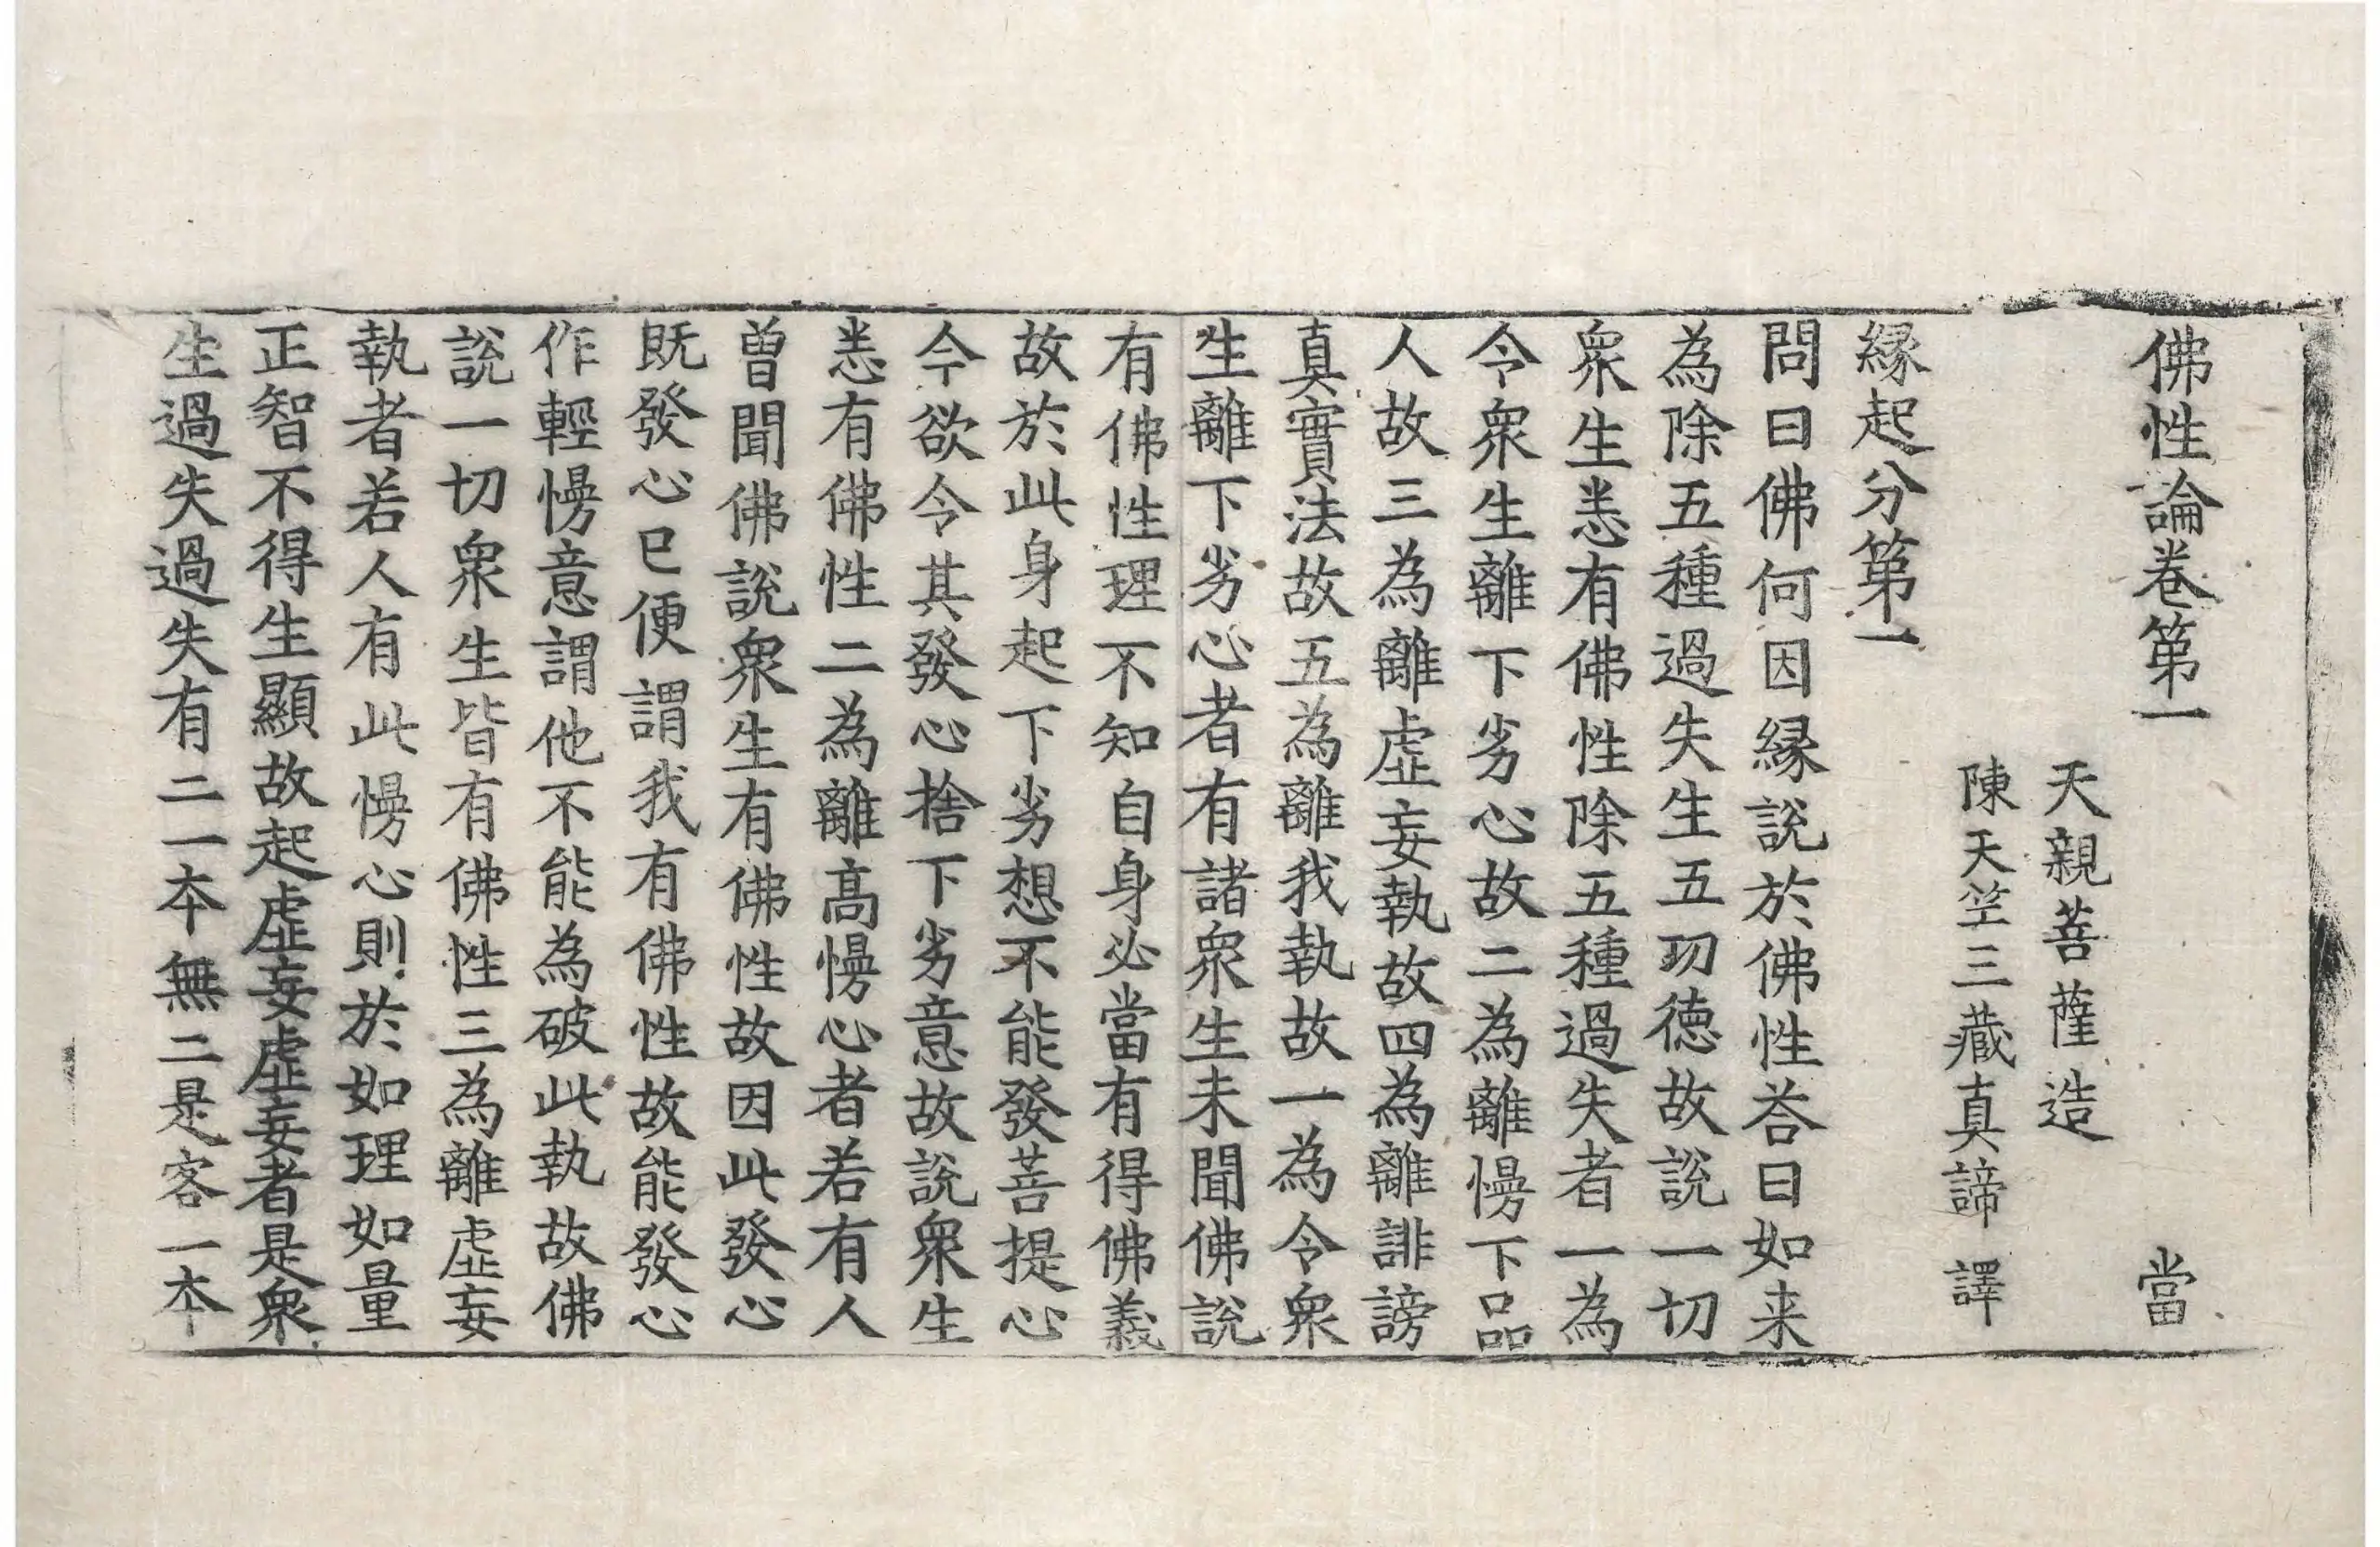 佛性論卷第一 當
天親菩薩造
陳天竺三藏真諦譯
縁起分第一
問曰佛何因縁說於佛性荅曰如来
為除五種過失生五功德故說一切
衆生悉有佛性除五種過失者一為
令衆生離下劣心故二為離慢下品
人故三為離虛妄執故四為離誹謗
真實法故五為離我執故一為令衆
生離下劣心者有諸衆生未聞佛說
有佛性理不知自身必當有得佛義
故於此身起下劣想不能發菩提心
今欲令其發心捨下劣意故說衆生
悉有佛性二為離髙慢心者若有人
曾聞佛說衆生有佛性故因此發心
既發心已便謂我有佛性故能發心
作輕慢意謂他不能為破此執故佛
說一切衆生皆有佛性三為離虛妄
執者若人有此慢心則於如理如量
正智不得生顯故起虛妄虛妄者是衆
生過失過失有二一本無二是客一本